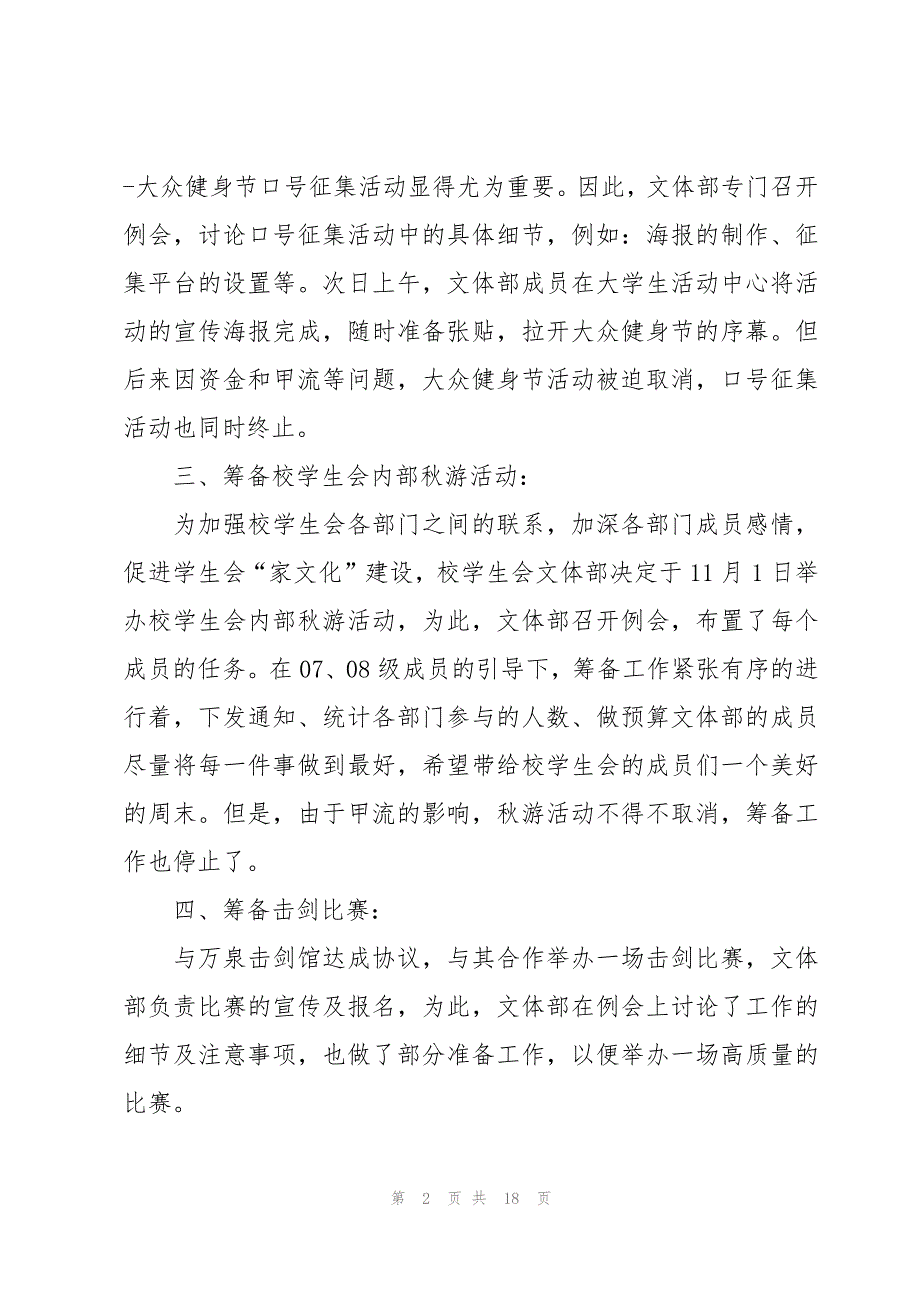 -大众健身节口号征集活动显得尤为重要。因此，文体部专门召开
例会，讨论口号征集活动中的具体细节，例如：海报的制作、征
集平台的设置等。次日上午，文体部成员在大学生活动中心将活
动的宣传海报完成，随时准备张贴，拉开大众健身节的序幕。但
后来因资金和甲流等问题，大众健身节活动被迫取消，口号征集
活动也同时终止。
三、筹备校学生会内部秋游活动：
为加强校学生会各部门之间的联系，加深各部门成员感情，
促进学生会“家文化”建设，校学生会文体部决定于 11 月 1 日举
办校学生会内部秋游活动，为此，文体部召开例会，布置了每个
成员的任务。在 07、08 级成员的引导下，筹备工作紧张有序的进
行着，下发通知、统计各部门参与的人数、做预算文体部的成员
尽量将每一件事做到最好，希望带给校学生会的成员们一个美好
的周末。但是，由于甲流的影响，秋游活动不得不取消，筹备工
作也停止了。
四、筹备击剑比赛：
与万泉击剑馆达成协议，与其合作举办一场击剑比赛，文体
部负责比赛的宣传及报名，为此，文体部在例会上讨论了工作的
细节及注意事项，也做了部分准备工作，以便举办一场高质量的
比赛。
第 2 页 共 18 页